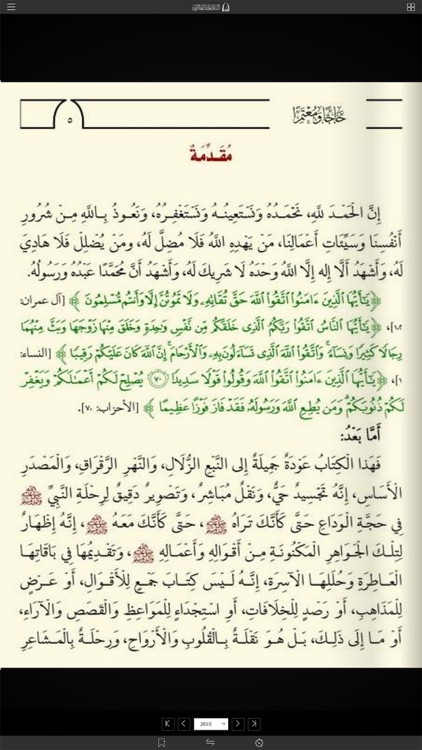 ٥
حَاجًّا وَمُعْتَمِرًا
مُقَدِّمَةٌ
إِنَّ الْحَمْدَ لِلَّهِ، نَحْمَدُهُ وَنَسْتَعِينُهُ وَنَسْتَغْفِرُهُ، وَنَعُوذُ بِاللَّهِ مِنْ شُرُورِ
أَنْفُسِنَا وَسَيِّئَاتِ أَعْمَالِنَا، مَنْ يَهْدِهِ اللَّهُ فَلَا مُضِلَّ لَهُ، وَمَنْ يُضْلِلْ فَلَا هَادِيَ
لَهُ، وَأَشْهَدُ أَلَّا إِلهَ إِلَّا اللَّهُ وَحْدَهُ لَا شَرِيكَ لَهُ، وَأَشْهَدُ أَنَّ مُحَمَّدًا عَبْدُهُ وَرَسُولُهُ.
﴿يَٰٓأَيُّهَا ٱلَّذِينَ ءَامَنُوا۟ ٱتَّقُوا۟ ٱللَّهَ حَقَّ تُقَاتِهِۦ وَلَا تَمُوتُنَّ إِلَّا وَأَنتُم مُّسْلِمُونَ﴾ [آل عمران:
١٠٢]، ﴿يَٰٓأَيُّهَا ٱلنَّاسُ ٱتَّقُوا۟ رَبَّكُمُ ٱلَّذِى خَلَقَكُم مِّن نَّفْسٍ وَٰحِدَةٍ وَخَلَقَ مِنْهَا زَوْجَهَا وَبَثَّ مِنْهُمَا
رِجَالًا كَثِيرًا وَنِسَآءً ۚ وَٱتَّقُوا۟ ٱللَّهَ ٱلَّذِى تَسَآءَلُونَ بِهِۦ وَٱلْأَرْحَامَ ۚ إِنَّ ٱللَّهَ كَانَ عَلَيْكُمْ رَقِيبًا﴾ [النساء:
١]، ﴿يَٰٓأَيُّهَا ٱلَّذِينَ ءَامَنُوا۟ ٱتَّقُوا۟ ٱللَّهَ وَقُولُوا۟ قَوْلًا سَدِيدًا ٧٠ يُصْلِحْ لَكُمْ أَعْمَٰلَكُمْ وَيَغْفِرْ
لَكُمْ ذُنُوبَكُمْ ۗ وَمَن يُطِعِ ٱللَّهَ وَرَسُولَهُۥ فَقَدْ فَازَ فَوْزًا عَظِيمًا﴾ [الأحزاب: ٧٠].
أَمَّا بَعْدُ:
فَهَذَا الْكِتَابُ عَوْدَةٌ جَمِيلَةٌ إِلَى النَّبْعِ الزُّلَالِ، وَالنَّهْرِ الرَّقْرَاقِ، وَالْمَصْدَرِ
الْأَسَاسِ، إِنَّهُ تَجْسِيدٌ حَيٌّ، وَنَقْلٌ مُبَاشِرٌ، وَتَصْوِيرٌ دَقِيقٌ لِرِحْلَةِ النَّبِيِّ ﷺ
فِي حَجَّةِ الْوَدَاعِ حَتَّى كَأَنَّكَ تَرَاهُ ﷺ، حَتَّى كَأَنَّكَ مَعَهُ ﷺ، إِنَّهُ إِظْهَارٌ
لِتِلْكَ الْجَوَاهِرِ الْمَكْنُونَةِ مِنْ أَقْوَالِهِ وَأَعْمَالِهِ ﷺ، وَتَقْدِيمُهَا فِي بَاقَاتِهَا
الْعَاطِرَةِ وَحُلَلِهَا الْآسِرَةِ، إِنَّهُ لَيْسَ كِتَابَ جَمْعٍ لِلْأَقْوَالِ، أَوْ عَرْضٍ
لِلْمَذَاهِبِ، أَوْ رَصْدٍ لِلْخِلَافَاتِ، أَوِ اسْتِجْدَاءٍ لِلْمَوَاعِظِ وَالْقَصَصِ وَالْآرَاءِ،
أَوْ مَا إِلَى ذَلِكَ، بَلْ هُوَ نَقْلَةٌ بِالْقُلُوبِ وَالْأَرْوَاحِ، وَرِحْلَةٌ بِالْمَشَاعِرِ
283/5